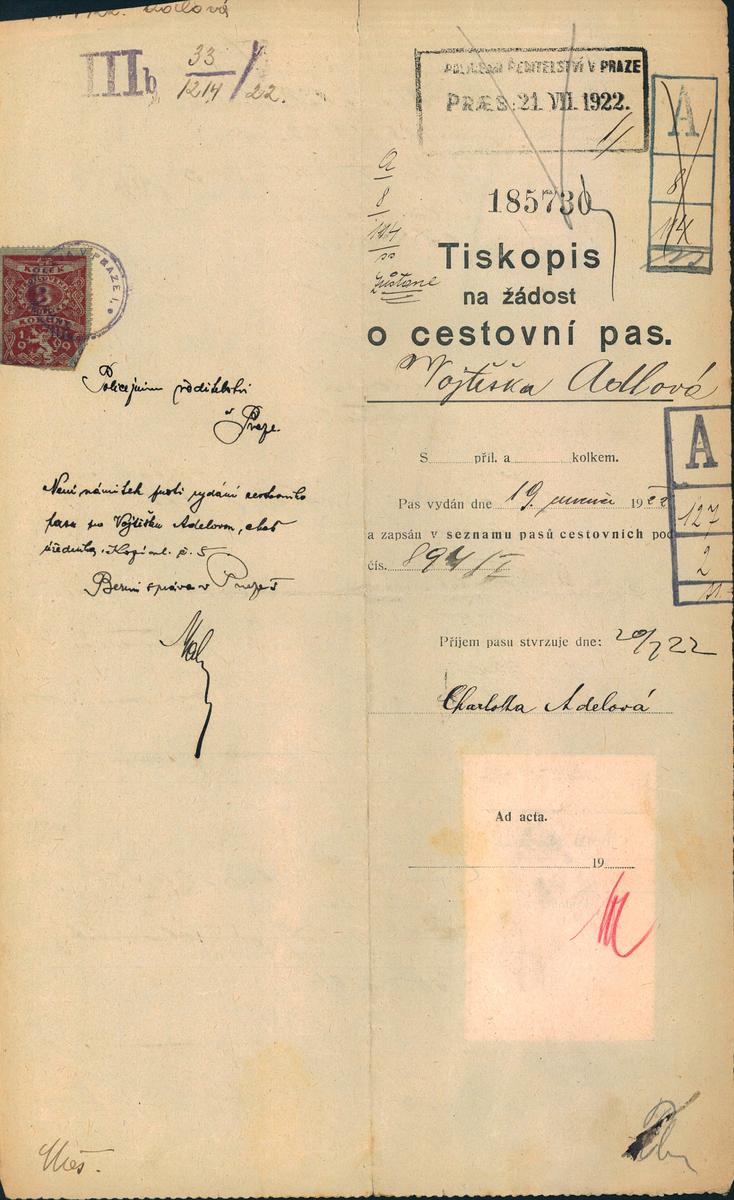 Adlová
IIIb 33/1214/22.
POLICEJNÍ ŘEDITELSTVÍ V PRAZE
PRÆS: 21. VII. 1922.
A
8
114
A
8
114
zůstane
185730
Tiskopis
na žádost
o cestovní pas.
Vojtěška Adlová
KOLEK
3
KORUNY
1919
V PRAZE I.
Policejnímu ředitelství
v Praze.
Není námitek proti vydání cestovního
pasu pro Vojtěšku Adelovou,
úřednici. Kopí č. 5
Berní správa v Praze
S příl. a kolkem.
Pas vydán dne 19. července 1922
a zapsán v seznamu pasů cestovních pod
čís. 894/I
A
127
2
Příjem pasu stvrzuje dne: 20/7 22
Charlotta Adelová
Ad acta.
19